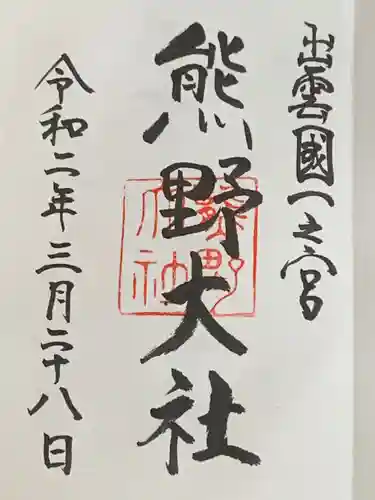 出雲國一之宮
熊野大社
令和二年三月二十八日